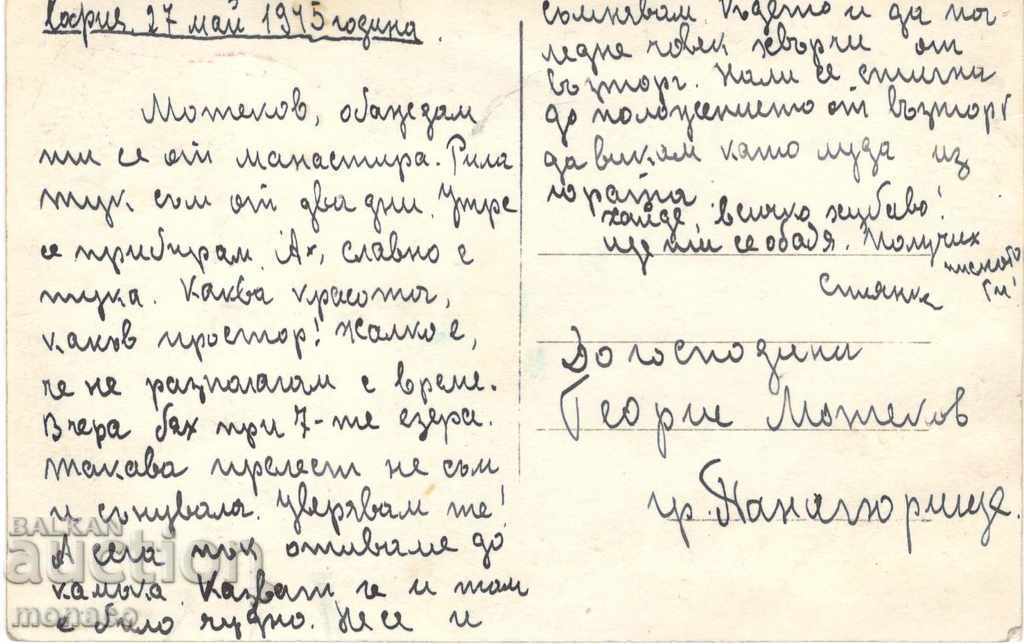 София. 27 май 1945 година.
Мотеков, обаждам
ти се от манастира. Рила
тук съм от два дни. Утре
се прибирам. Ах, славно е
тука. Каква красота,
какъв простор! Жалко е,
че не разполагам с време.
Вчера бях при 7-те езера.
Такава прелест не съм
и сънувала. Уверявам те!
А сега пък отиваме до
камъка. Казват че и там
е било чудно. Не се и
съмнявам. Където и да пог
ледне човек хвърчи от
възторг. Нали се стигна
до положението от възторг
да викам като луда из
гората.
Хайде, всичко хубаво!
Ще ти се обадя. Получих
писмото
ти!
Стиянка
До господин
Георги Мотеков
гр. Панагюрище.
BALKAN
auction
monaso